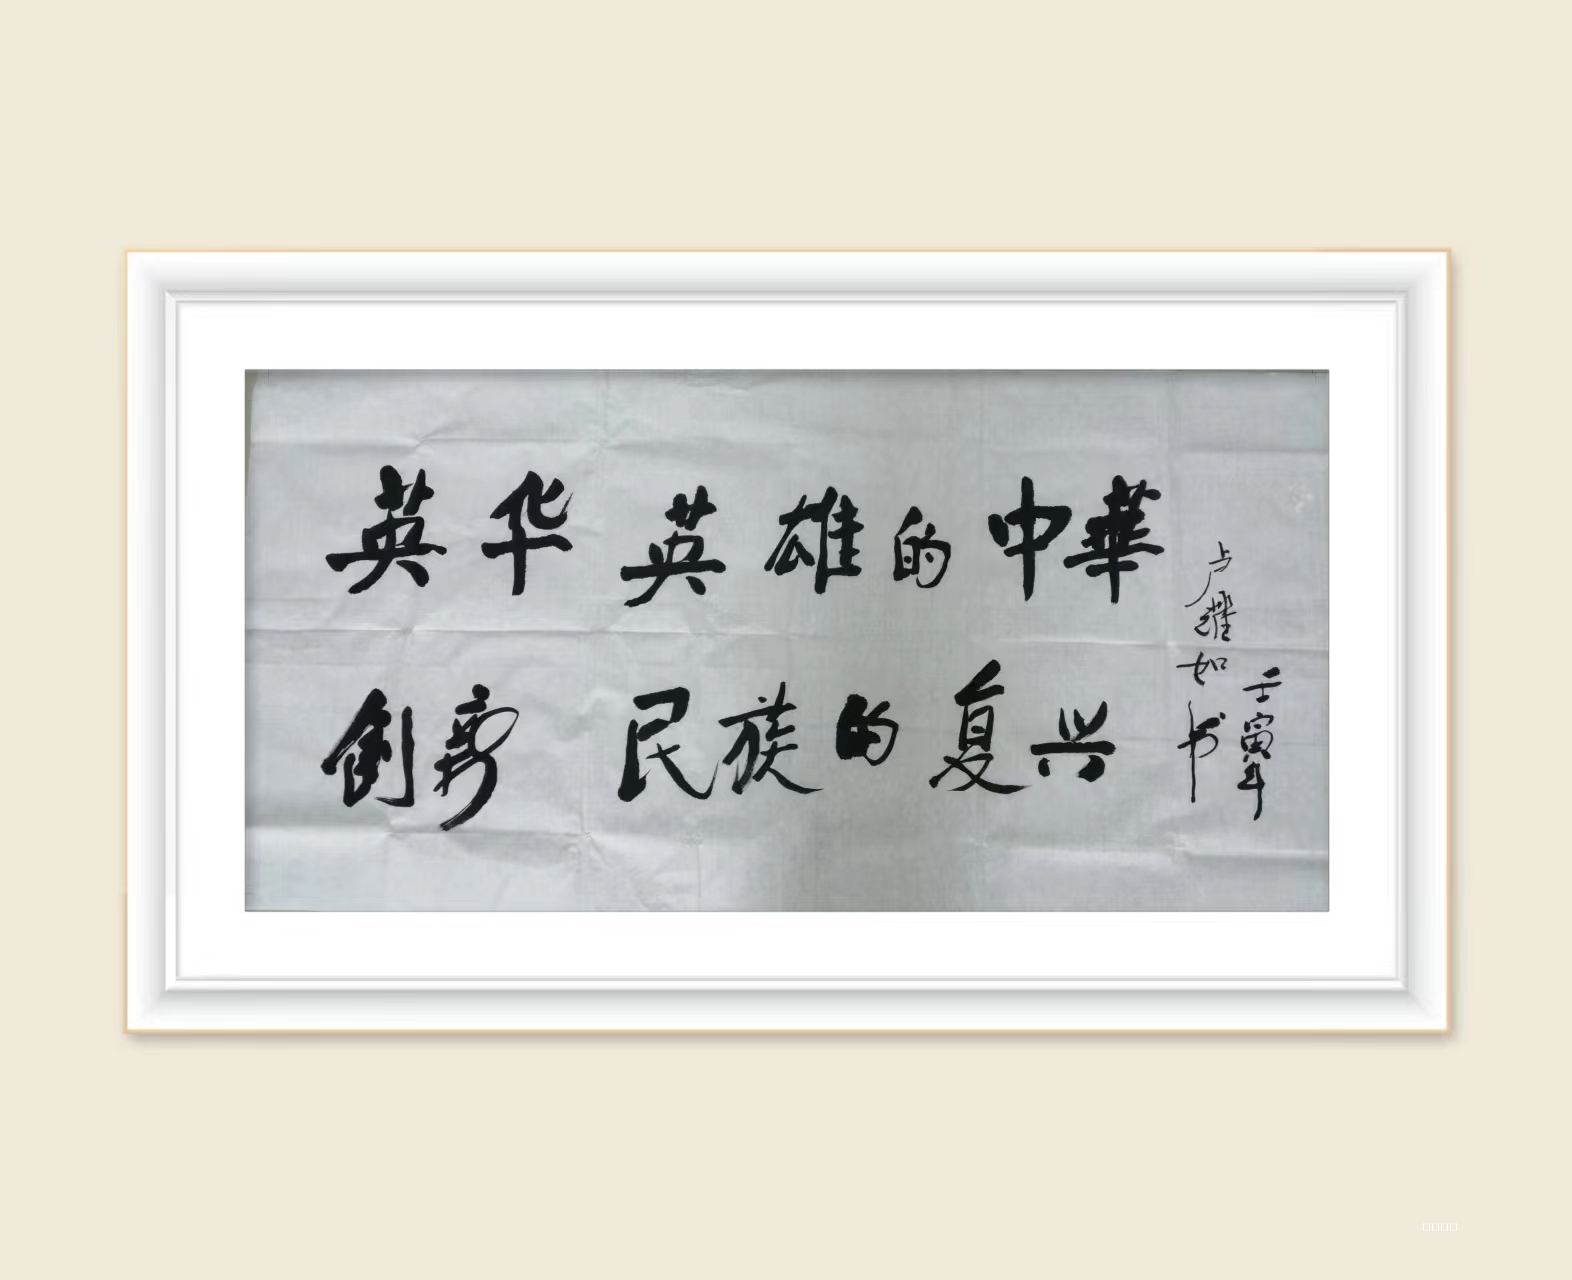 英华 英雄的中華
创新 民族的复兴
卢耀如书
壬寅年